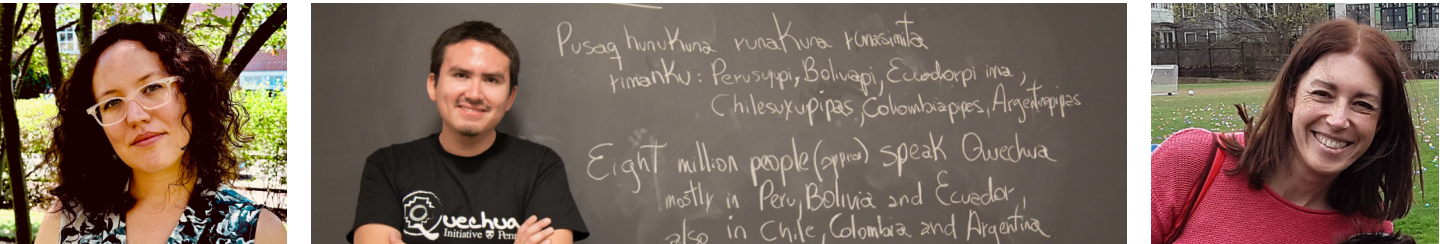 Pusaq hunukuna runakuna runasimita
rimanku: Perusuyupi, Boliviapi, Ecuadorpi ima,
Chilesuyupipas, Colombiapipas, Argentinapipas
Eight million people (approx) speak Quechua
mostly in Peru, Bolivia and Ecuador,
also in Chile, Colombia and Argentina
Quechua
Initiative Penn